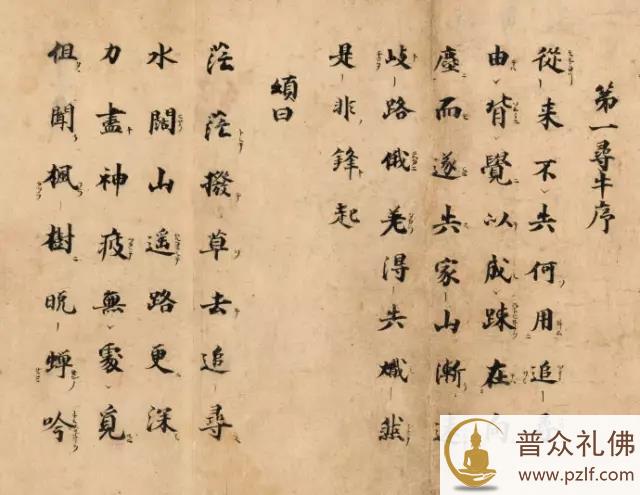 第一尋牛序
從来不失何用追
由背覺以成踈在向
塵而遂失家山漸
岐路俄差得失熾然
是非鋒起
頌曰
茫茫撥草去追尋
水闊山遥路更深
力盡神疲無處覓
但聞楓樹晩蟬吟
普众礼佛
www.pzlf.com